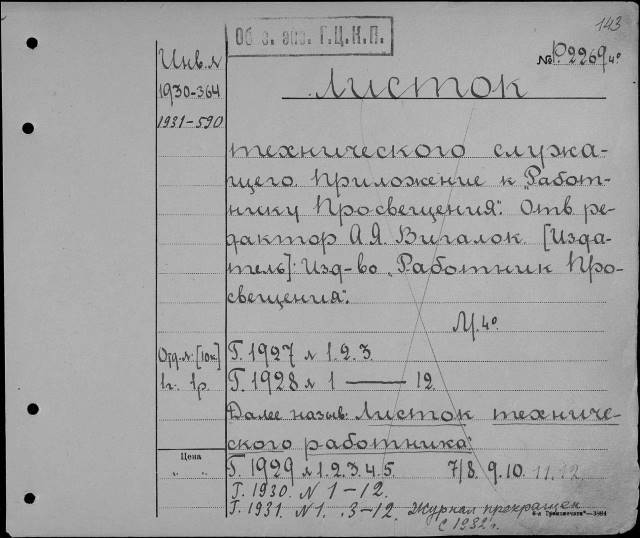 143
Обяз. экз. Г.Ц.К.П.
№ Р.2269 4°
Инв. №
1930-364
1931-590
Листок
технического служа-
щего. Приложение к „Работ-
нику Просвещения". Отв. ре-
дактор А.Я. Вигалок. [Изда-
тель]: Изд-во „Работник Про-
свещения".
М. 4°
Отд. №: [10к.]
1г. 1р.
Г. 1927 № 1. 2. 3
Г. 1928 № 1 — 12.
Далее назыв: Листок техниче-
ского работника"
Цена
" "
Г. 1929 № 1. 2. 3. 4. 5. 7/8. 9. 10. 11. 12
Г. 1930. N 1-12.
Г. 1931. N 1. 3-12. Журнал прекращен
с 1932 г.